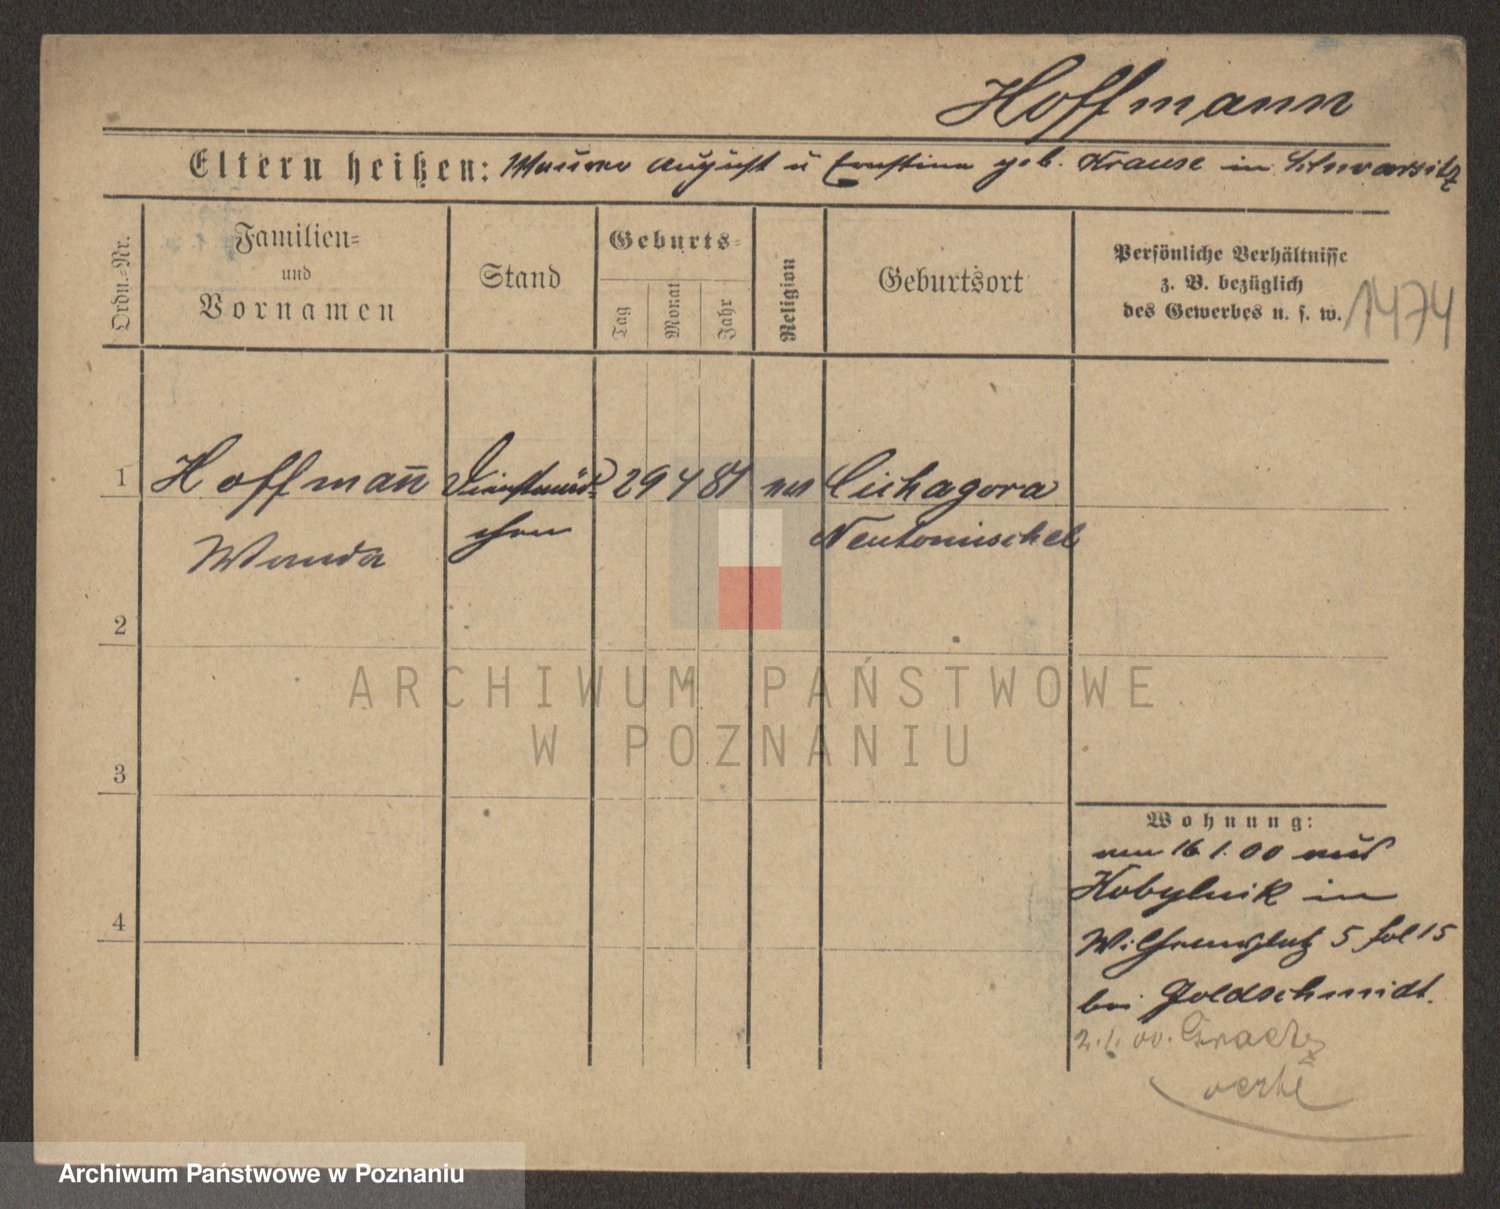 Hoffmann
Eltern heißen: Maurer August u Ernstine geb. Krause in Schwarsitz
Ordn.-Nr.
Familien-
und
Vornamen
Stand
Geburts-
Tag
Monat
Jahr
Religion
Geburtsort
Persönliche Verhältnisse
z. B. bezüglich
des Gewerbes u. s. w.
1474
1 Hoffmann Dienstmäd- 29 4 81 Cichagora
Wanda chen Neutomischel
2
3
4
Wohnung:
am 16 1. 00 aus
Kobylnik in
Wilhelmsplatz 5 fol 15
bei Goldschmidt.
ARCHIWUM PAŃSTWOWE
W POZNANIU
Archiwum Państwowe w Poznaniu